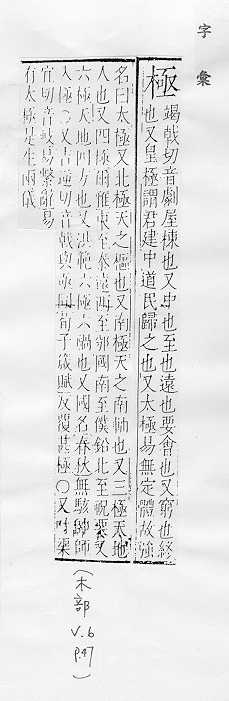 字彙
極 竭戟切音劇屋棟也又中也至也遠也要會也又窮也終
也又皇極謂君建中道民歸之也又太極易無定體故強
名曰太極又北極天之樞也又南極天之南也又三極天地
人也又四極爾雅東至泰遠西至邠國南至濮鉛北至祝栗又
六極天地四方也又洪範六極六禍也又國名春秋無駭帥師
入極〇又吉逆切音戟與亟同荀子箴賦反覆甚極〇又
宜切音或易繫辭易
有太極是生兩儀
(木部
V.6
p.47
)